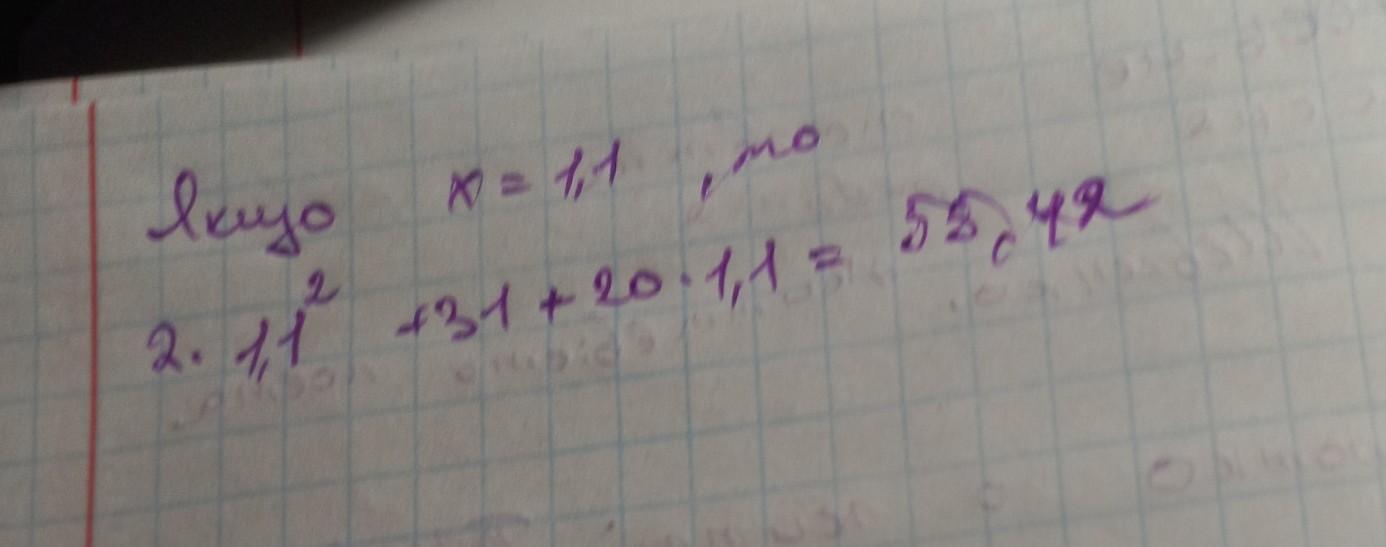 Якщо x = 1,1 , то
2 · 1,1² + 31 + 20 · 1,1 = 55,42